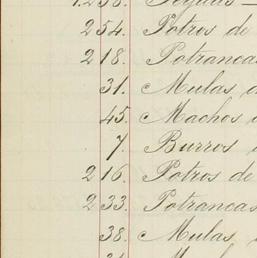 1.238. Yeguas
254. Potros de
218. Potrancas
31. Mulas
45. Machos
7. Burros
216. Potros de
233. Potrancas
38. Mulas,